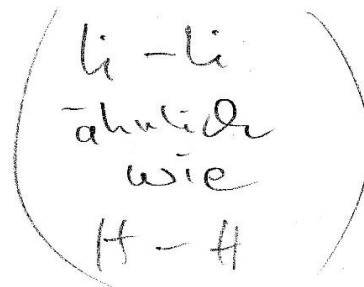 (Li – Li
ähnlich
wie
H – H)